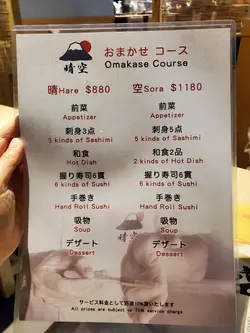 おまかせ コース
晴空 Omakase Course
晴Hare $880 空Sora $1180
前菜 前菜
Appetizer Appetizer
刺身3点 刺身5点
3 kinds of Sashimi 5 kinds of Sashimi
和食 和食2品
Hot Dish 2 kinds of Hot Dish
握り寿司6貫 握り寿司6貫
6 kinds of Sushi 6 kinds of Sushi
手巻き 手巻き
Hand Roll Sushi Hand Roll Sushi
吸物 吸物
Soup Soup
デザート デザート
Dessert Dessert
晴空
サービス料金として別途10%頂いたします
All prices are subject to 10% service charge